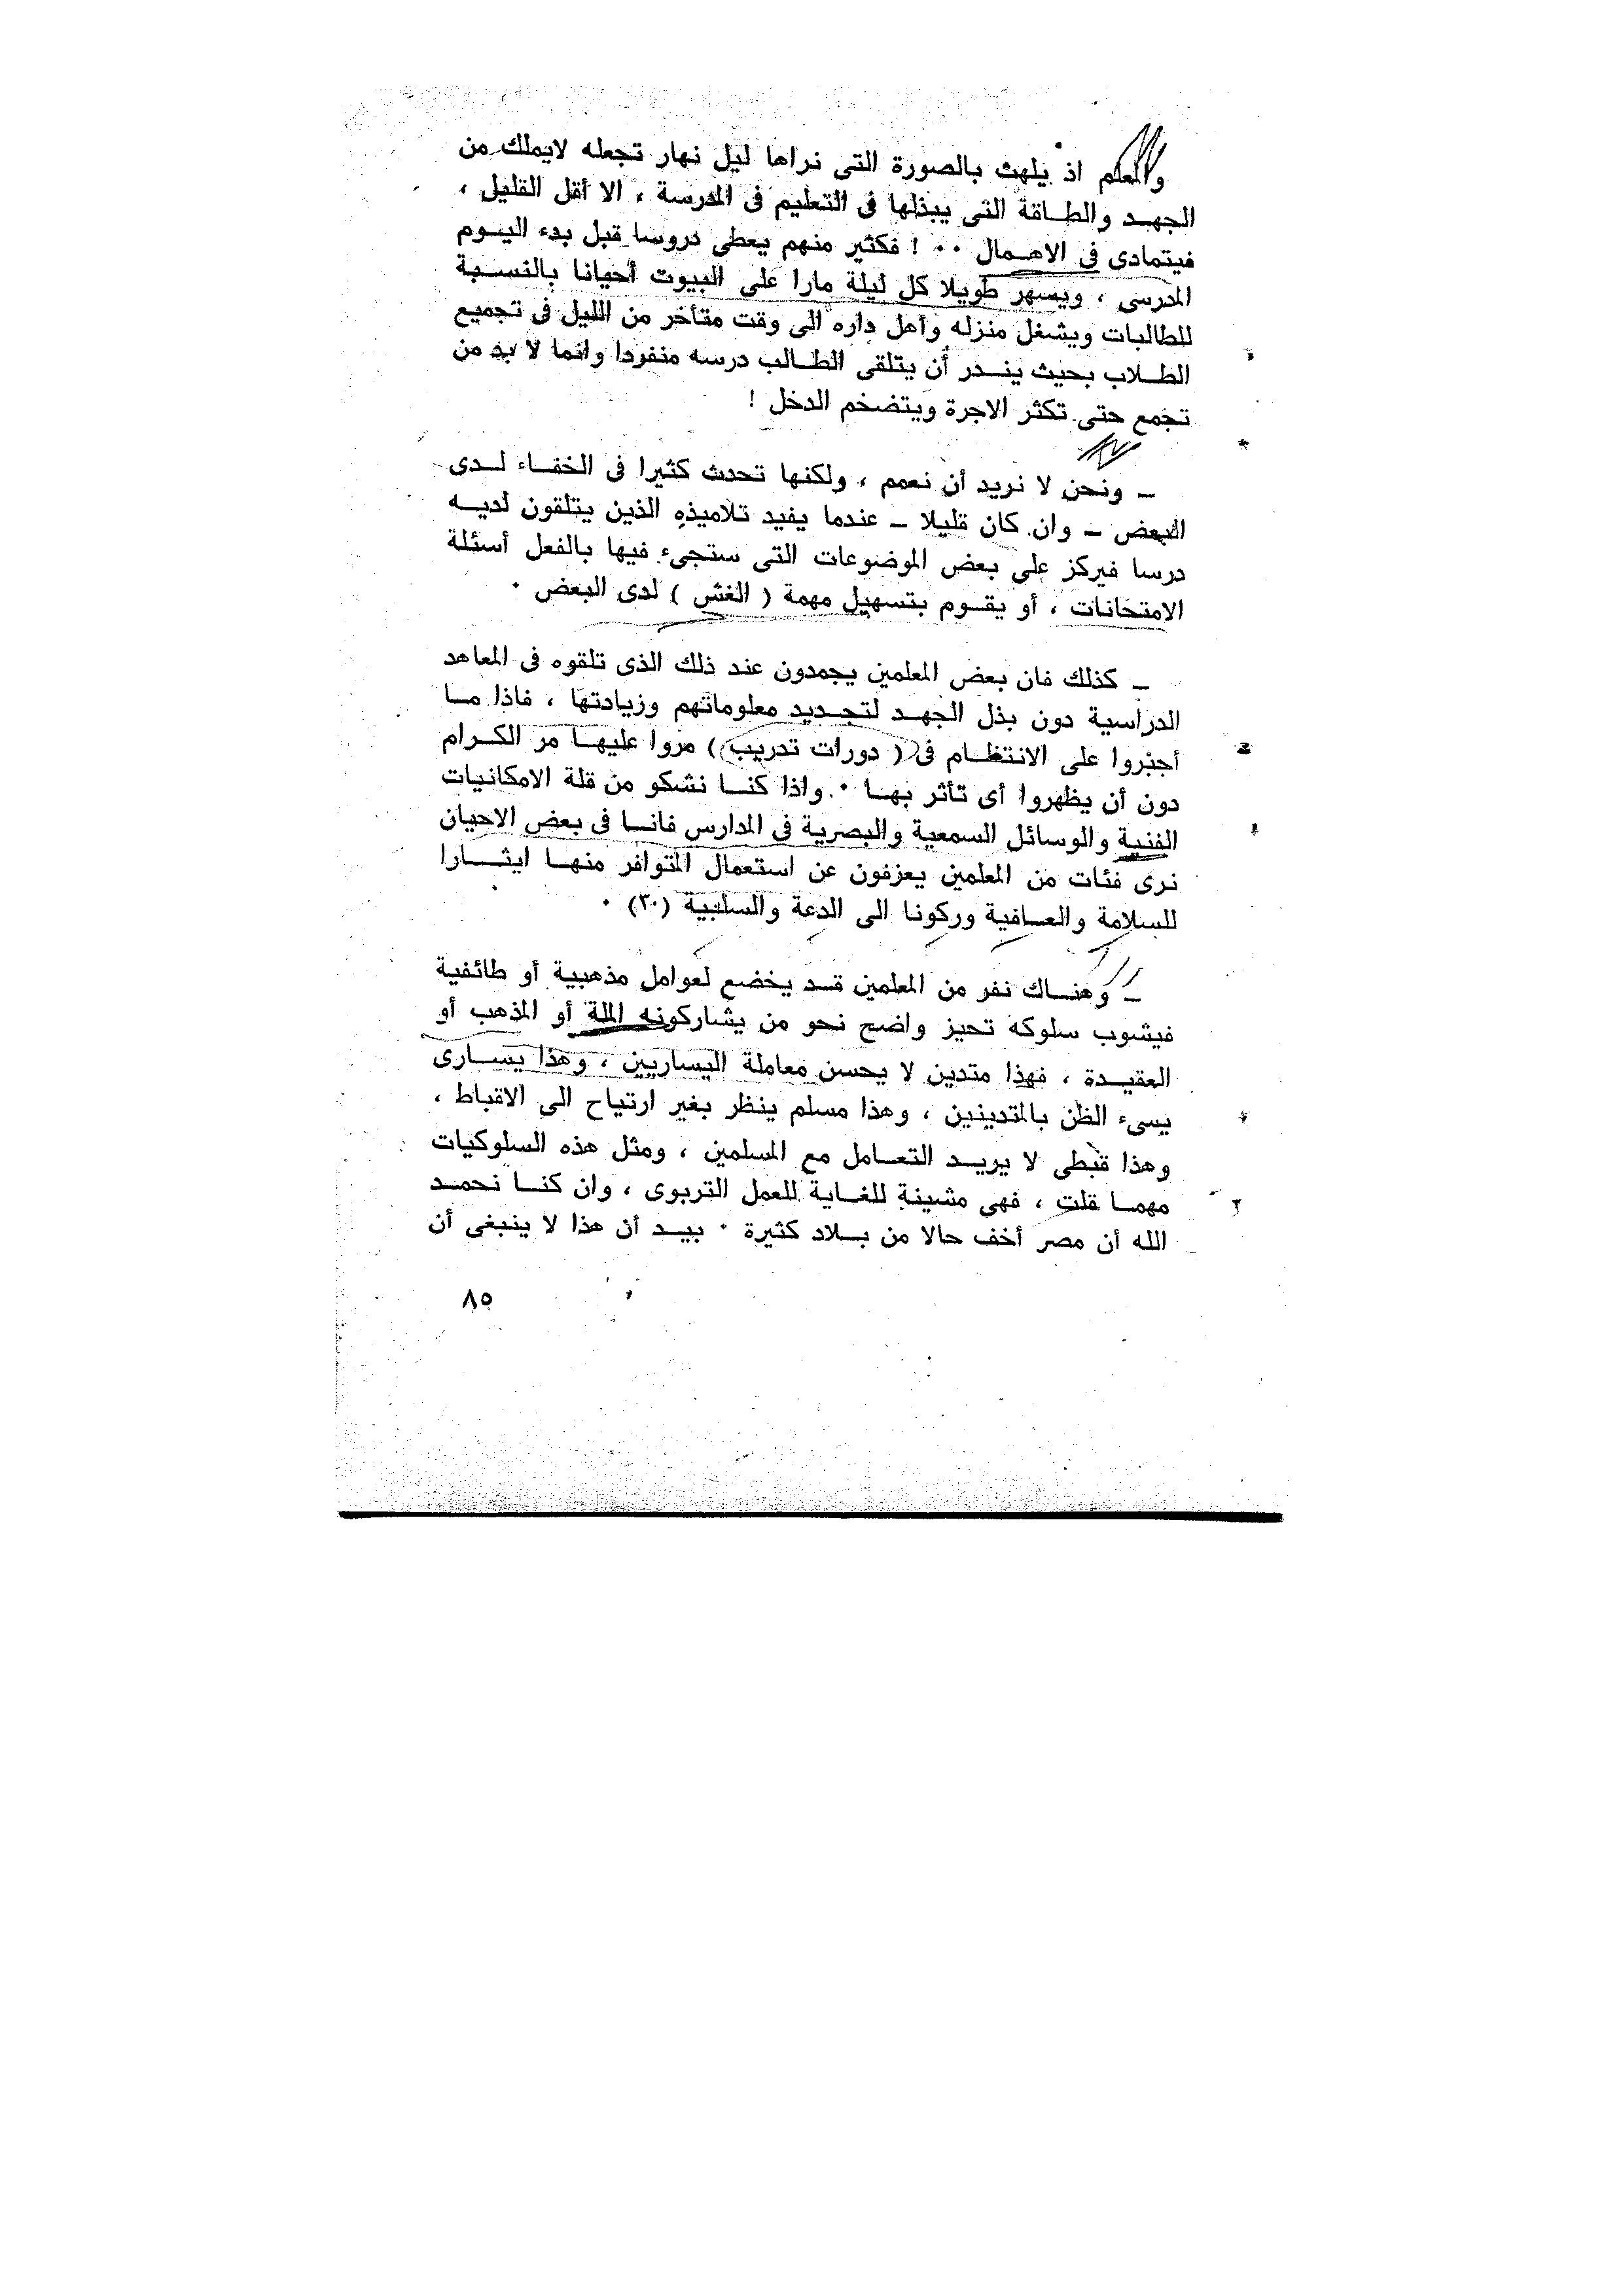 والمعلم اذ يلهث بالصورة التى نراها ليل نهار تجعله لايملك من
الجهد والطاقة التى يبذلها فى التعليم فى المدرسة ، الا أقل القليل ،
فيتمادى فى الاهمال ٠٠ ! فكثير منهم يعطى دروسا قبل بدء اليوم
المدرسى ، ويسهر طويلا كل ليلة مارا على البيوت أحيانا بالنسبة
للطالبات ويشغل منزله وأهل داره الى وقت متأخر من الليل فى تجميع
الطلاب بحيث يندر أن يتلقى الطالب درسه منفردا وانما لا بد من
تجمع حتى تكثر الاجرة ويتضخم الدخل !
ــ ونحن لا نريد أن نعمم ، ولكنها تحدث كثيرا فى الخفاء لدى
البعض ــ وان كان قليلا ــ عندما يفيد تلاميذه الذين يتلقون لديه
درسا فيركز على بعض الموضوعات التى ستجىء فيها بالفعل أسئلة
الامتحانات ، أو يقوم بتسهيل مهمة ( الغش ) لدى البعض ٠
ــ كذلك فان بعض المعلمين يجمدون عند ذلك الذى تلقوه فى المعاهد
الدراسية دون بذل الجهد لتجديد معلوماتهم وزيادتها ، فاذا ما
أجبروا على الانتظام فى ( دورات تدريب ) مروا عليها مر الكرام
دون أن يظهروا أى تأثر بها ٠ واذا كنا نشكو من قلة الامكانيات
الفنية والوسائل السمعية والبصرية فى المدارس فانا فى بعض الاحيان
نرى فئات من المعلمين يعزفون عن استعمال المتوافر منها ايثارا
للسلامة والعافية وركونا الى الدعة والسلبية (٣٠) ٠
ــ وهناك نفر من المعلمين قد يخضع لعوامل مذهبية أو طائفية
فيشوب سلوكه تحيز واضح نحو من يشاركونه الملة أو المذهب أو
العقيدة ، فهذا متدين لا يحسن معاملة اليساريين ، وهذا يسارى
يسىء الظن بالمتدينين ، وهذا مسلم ينظر بغير ارتياح الى الاقباط ،
وهذا قبطى لا يريد التعامل مع المسلمين ، ومثل هذه السلوكيات
مهما قلت ، فهى مشينة للغاية للعمل التربوى ، وان كنا نحمد
الله أن مصر أخف حالا من بلاد كثيرة ٠ بيد أن هذا لا ينبغى أن
٨٥